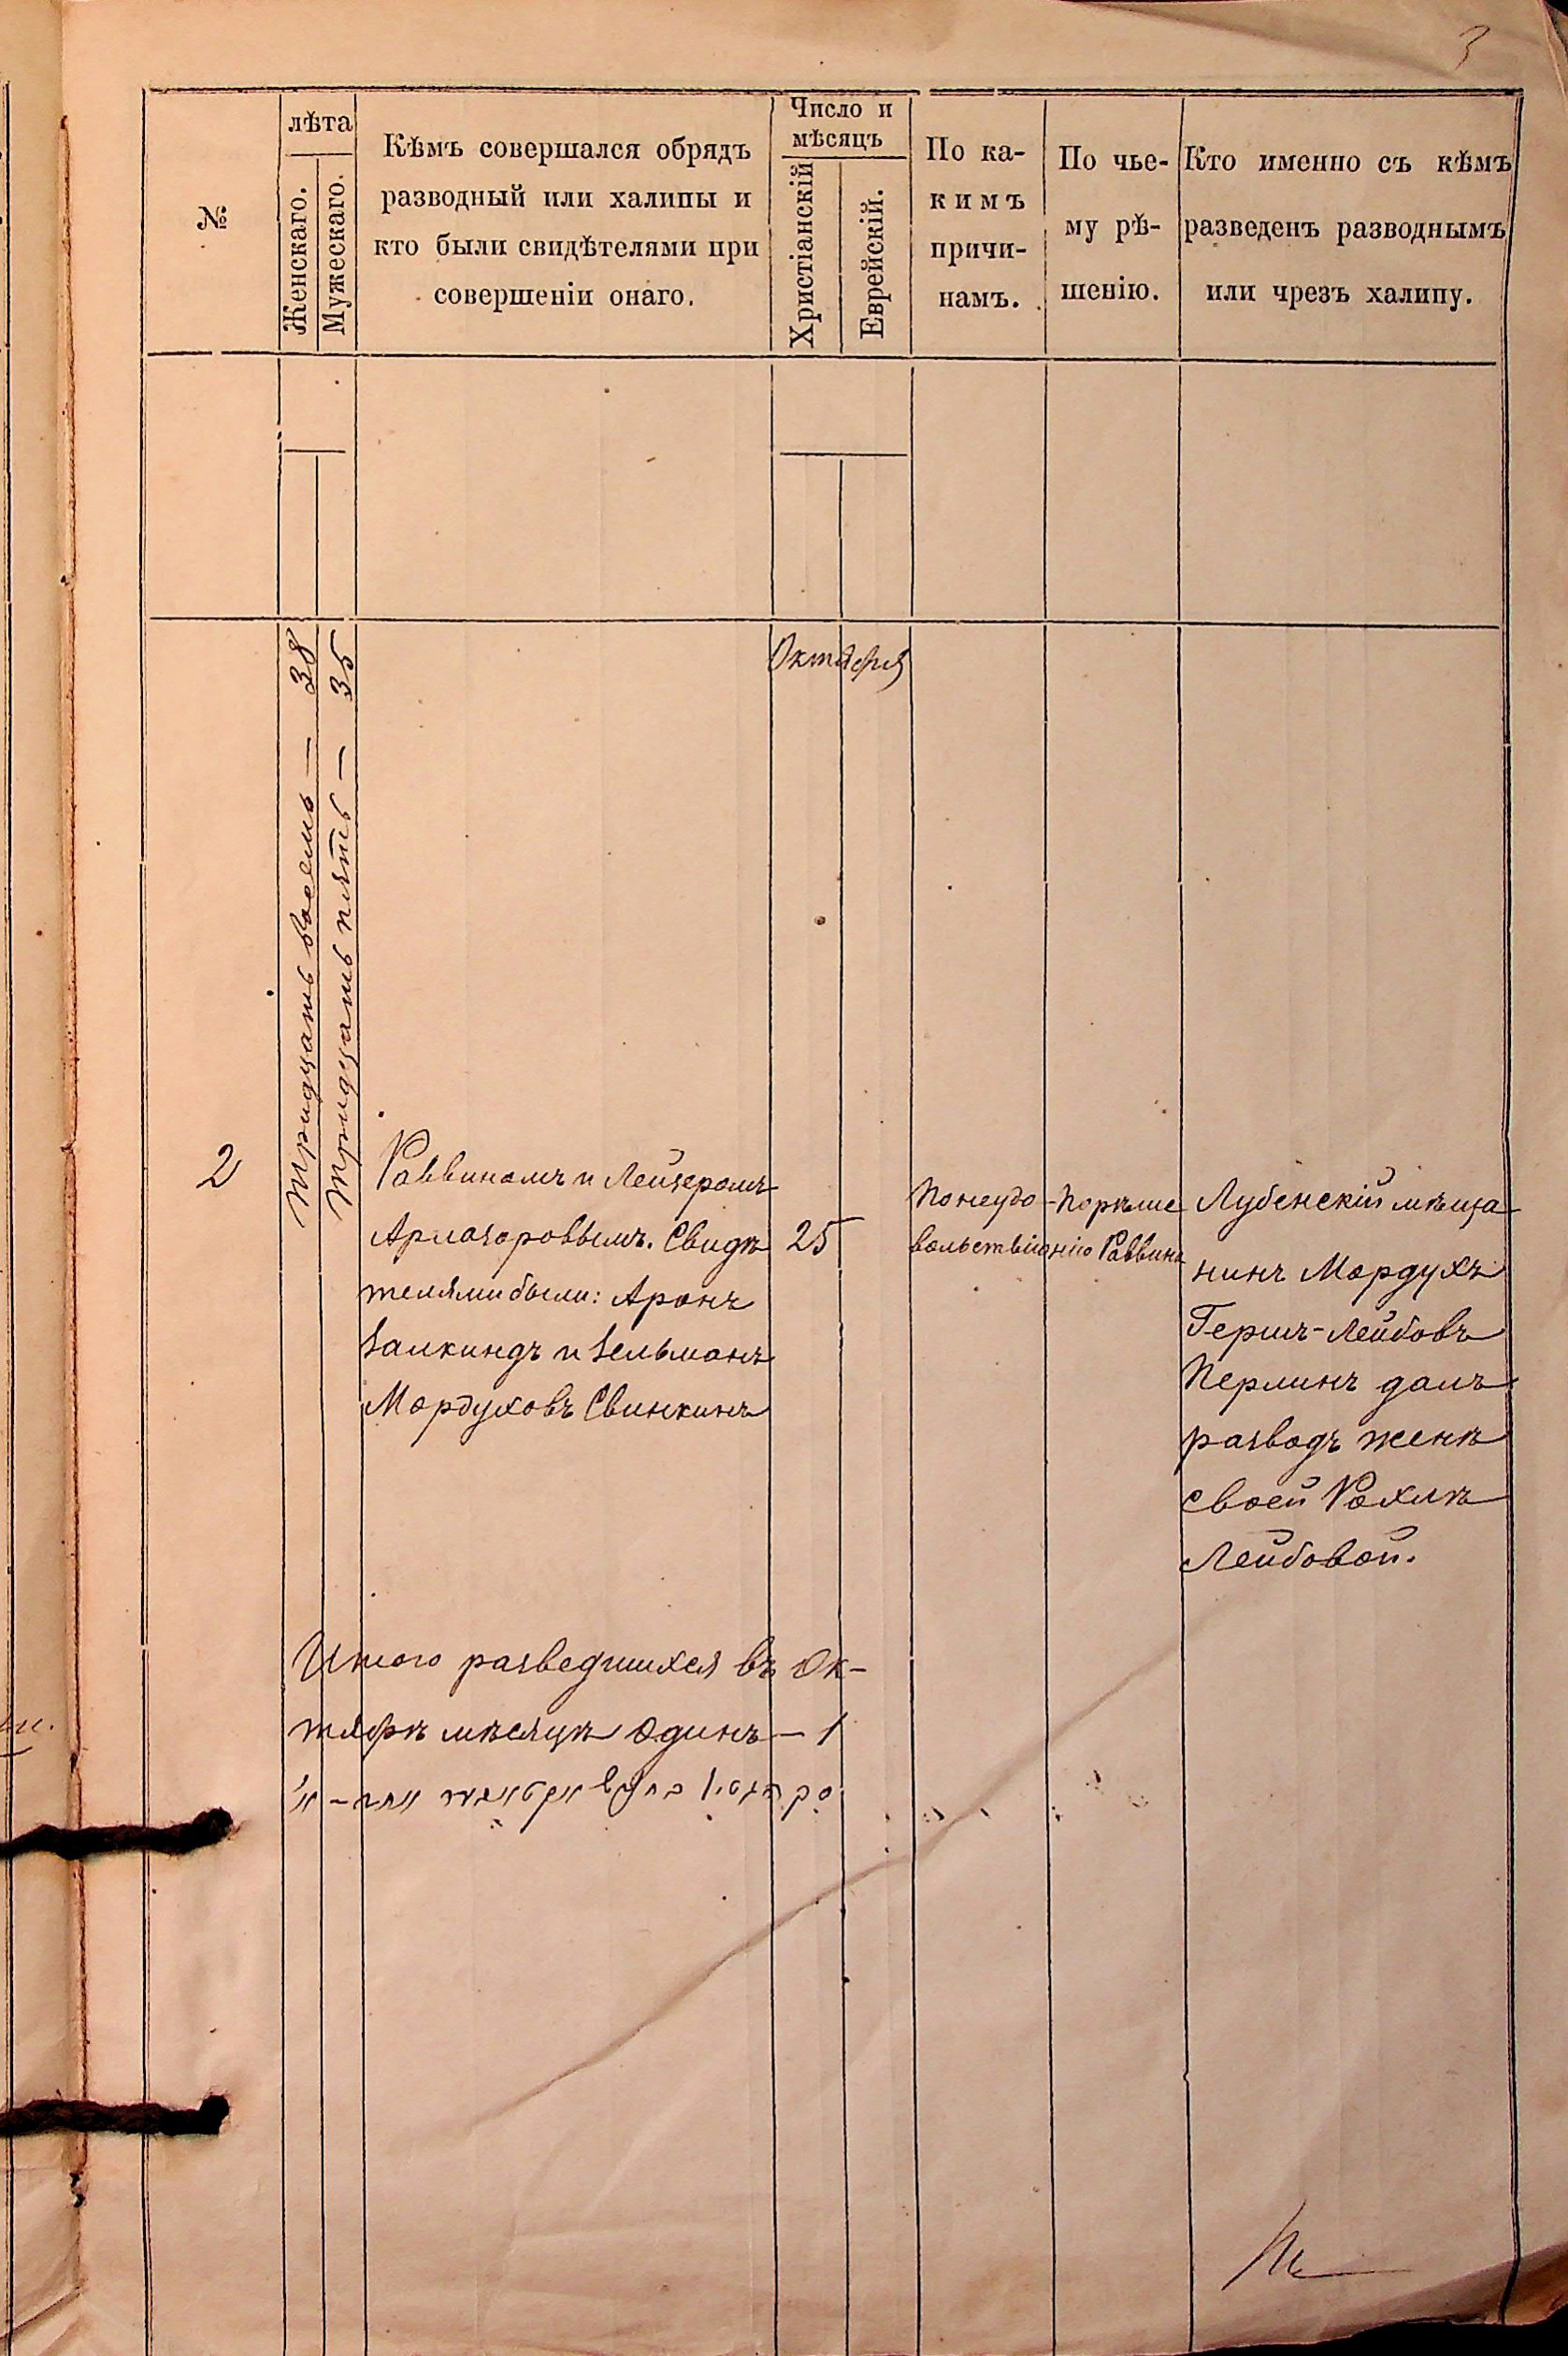 3
№
лѣта
Женскаго.
Мужескаго.
Кѣмъ совершался обрядъ
разводный или халипы и
кто были свидѣтелями при
совершеніи онаго.
Число и
мѣсяцъ
Христіанскій
Еврейскій.
По ка-
кимъ
причи-
намъ.
По чье-
му рѣ-
шенію.
Кто именно съ кѣмъ
разведенъ разводнымъ
или чрезъ халипу.
Октября
2
Тридцать восемь — 38
Тридцать пять — 35
Раввиномъ и Лейзеромъ
Арлозоровымъ. Свидѣ
телями были: Аронъ
Залкиндъ и Зельманъ
Мордуховъ Свинкинъ
25
По неудо-
вольствію
По рѣше
нію Раввина
Лубенскій мѣща
нинъ Мордухъ
Гершъ-Лейбовъ
Перлинъ далъ
разводъ женѣ
своей Рохлѣ
Лейбовой.
Итого разведшихся въ Ок-
тябрѣ мѣсяцѣ одинъ — 1